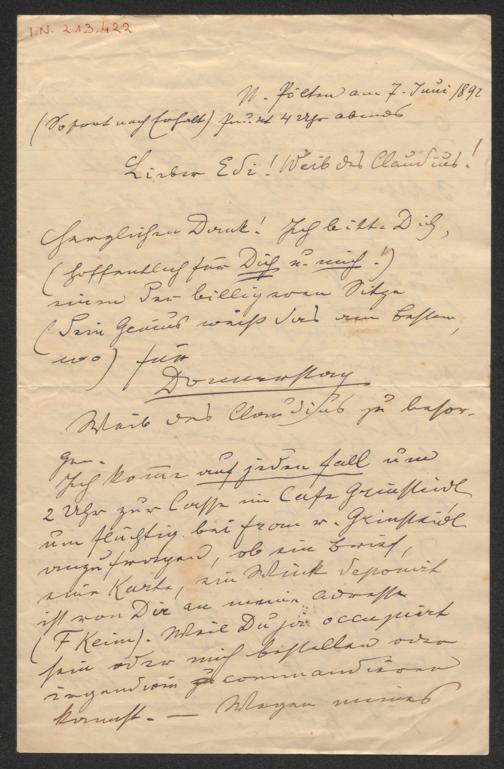 I.N. 213.422
St. Pölten am 7. Juni 1892
(Sofort nach Erhalt) Punkt 4 Uhr abends
Lieber Edi! Weib des Claudius!
Herzlichen Dank! Ich bitte Dich,
(hoffentlich für Dich u. mich!)
einem der billigeren Sitze
(Dein Genius weiß das am besten,
wo) für
Donnerstag
Weib des Claudius zu besor-
gen.
Ich komme auf jeden fall um
2 Uhr zur Casse im Cafe Grinsteidl
um flüchtig bei Frau v. Grinsteidl
anzufragen, ob ein Brief,
eine Karte, ein Wink deponirt
ist von Dir an meine Adresse
(F Keim). Weil Du ja occupiert
sein oder mich bestellen oder
irgendwie commandieren
kannst. — Wegen meines